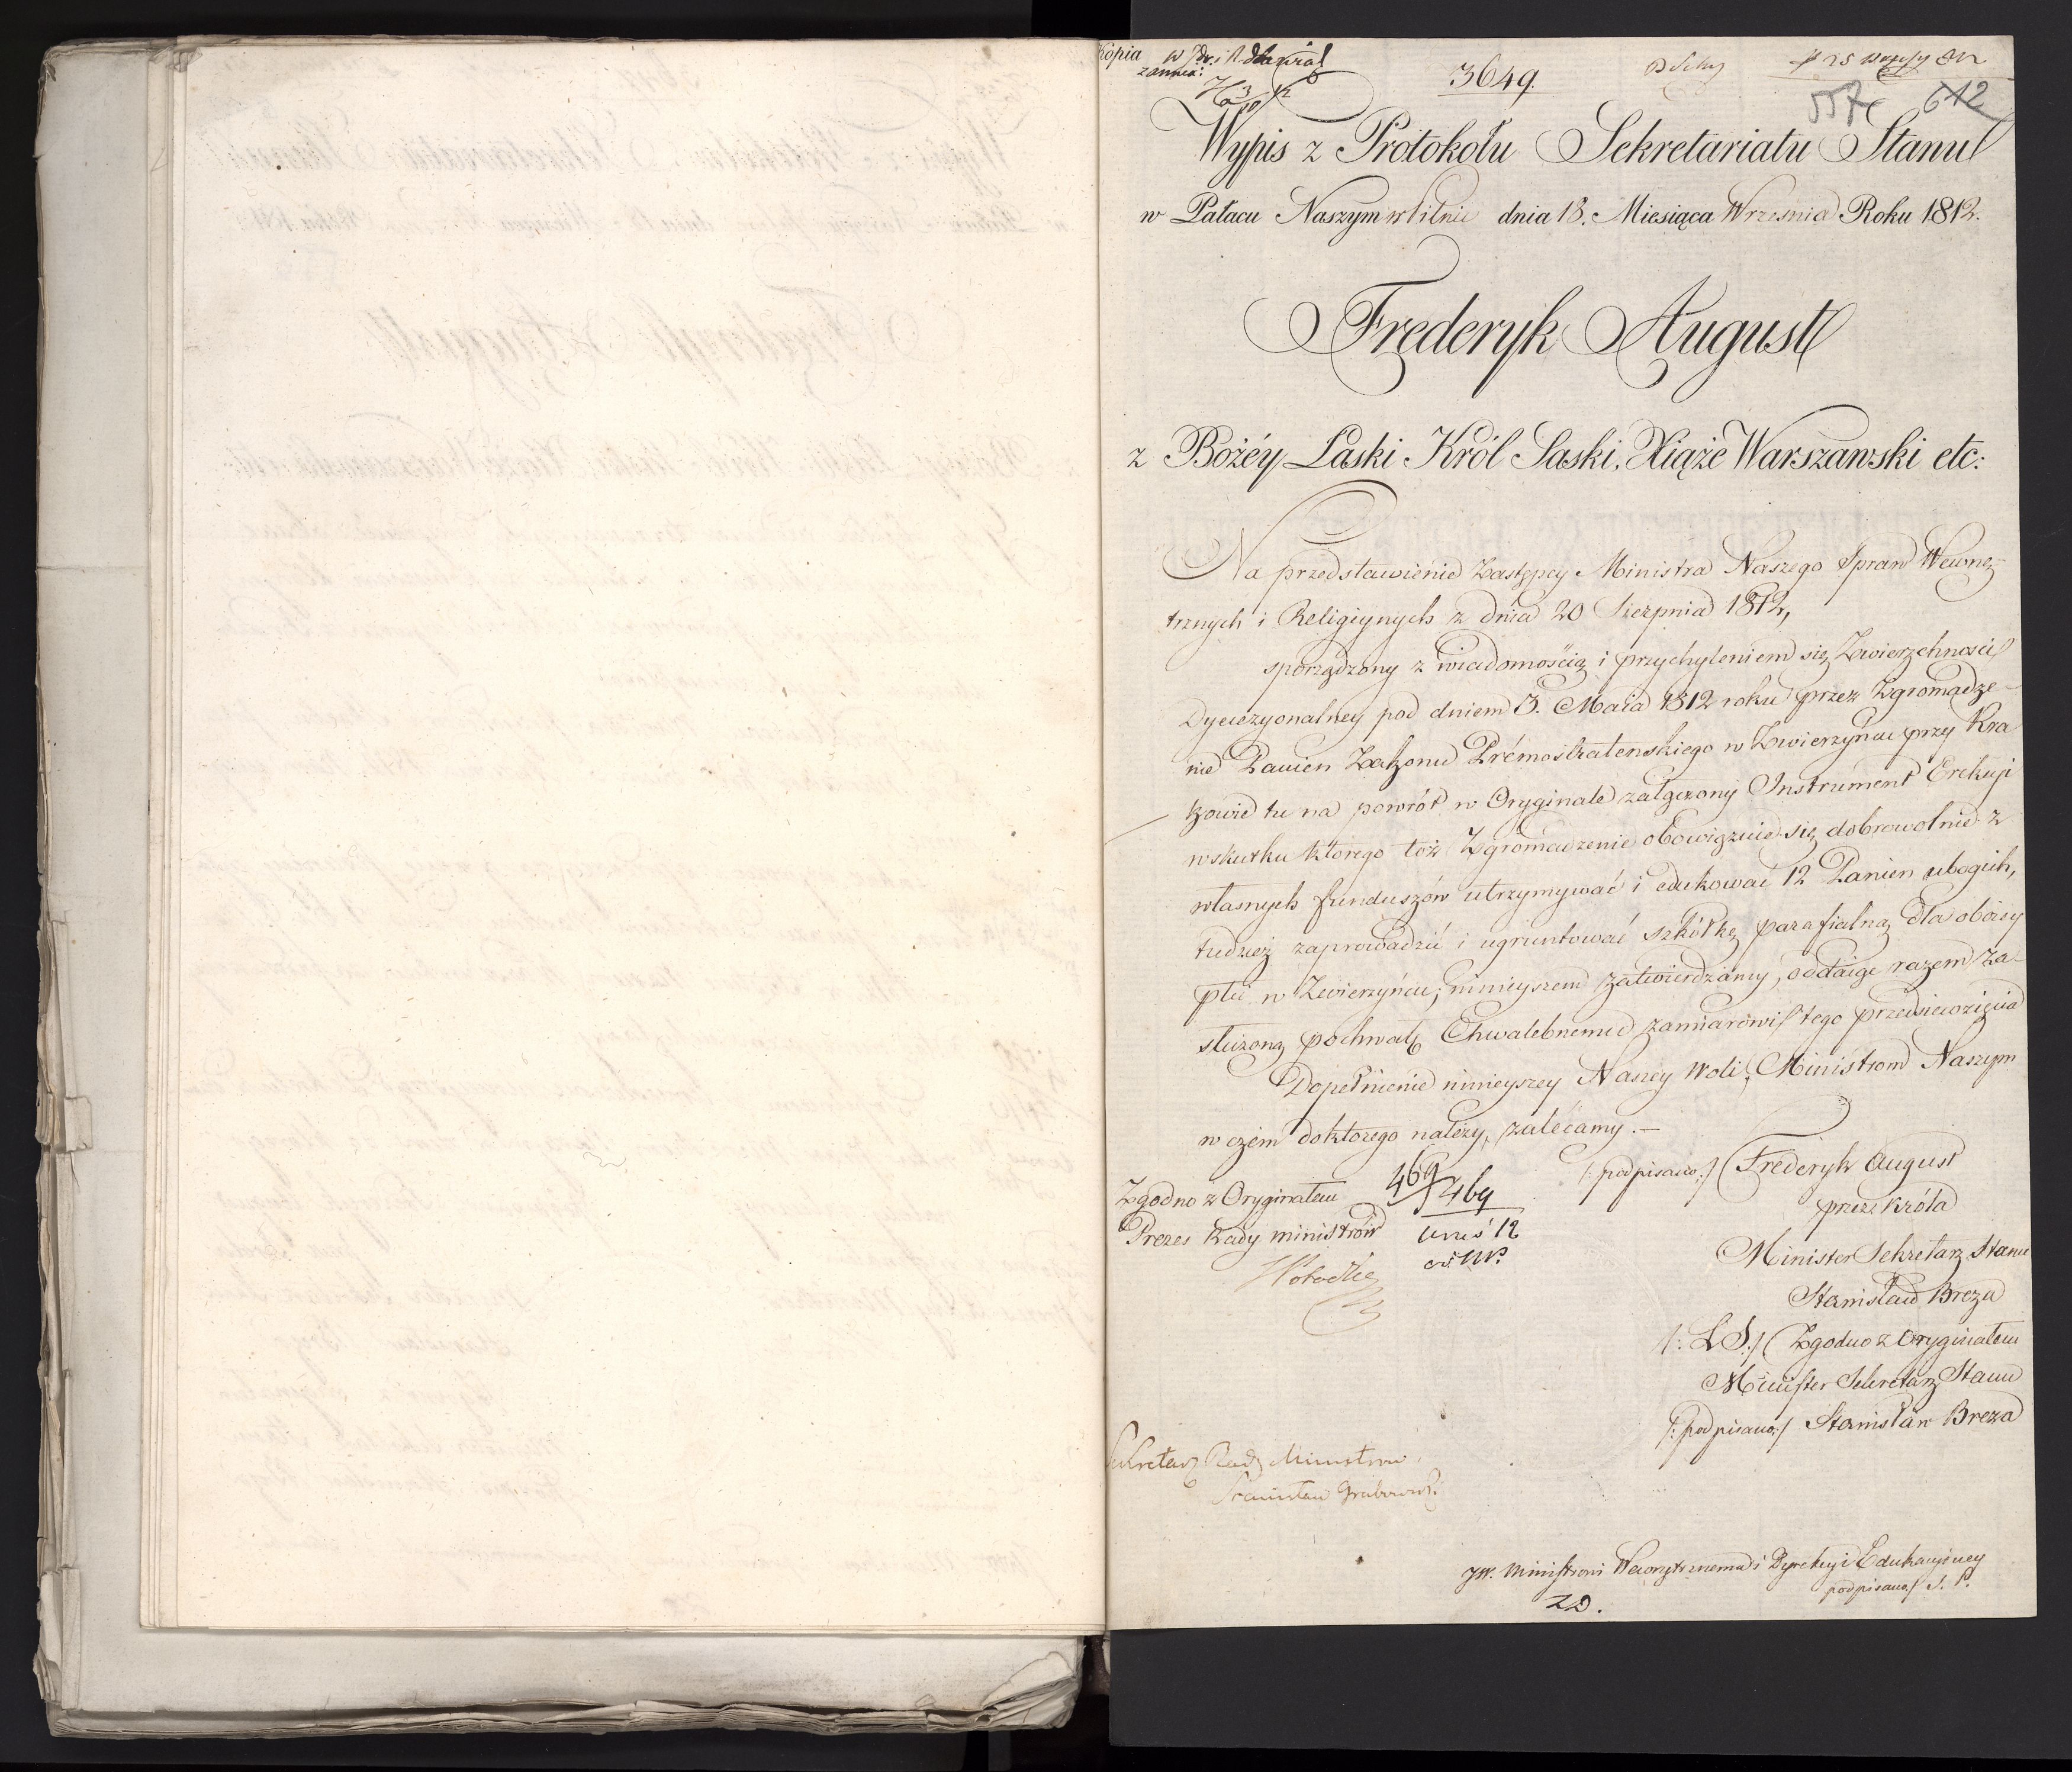 Kopia
3649.
557 612
Wypis z Protokołu Sekretariatu Stanu
w Pałacu Naszym w Pilnie dnia 13. Miesiąca Września Roku 1812.
Frederyk August
z Bożéy Łaski Król Saski, Xiąże Warszawski etc:
Na przedstawienie Zastępcy Ministra Naszego Spraw Wewnę-
trznych i Religiynych z dnia 20 Sierpnia 1812,
sporządzony z wiadomością i przychyleniem się Zwierzchności
Dyecezyonalney pod dniem 3. Maia 1812 roku przez Zgromadze-
nie Panien Zakonu Prémonstratenskiego w Zwierzyńcu przy Kra
kowie tu na powrót w Oryginale załączony Instrument Erekcyi
wskutku którego toż Zgromadzenie obowiązuie się dobrowolnie z
własnych funduszów utrzymywać i edukować 12 Panien ubogich,
tudzież zaprowadzić i ugruntować szkółkę parafialną dla oboiey
płci w Zwierzyńcu; ninieyszem zatwierdzamy, oddaiąc razem za-
służoną pochwałę Chwalebnemu zamiarowi tego przedsięwzięcia
Dopełnienie ninieyszey Naszey Woli, Ministrom Naszym
w czém do którego należy, zalécamy.—
/:podpisano:/ Frederyk August
przez Króla
Minister Sekretarz Stanu
Stanisław Breza
/: L S:/ Zgodno z Oryginałem
Minister Sekretarz Stanu
/:podpisano:/ Stanisław Breza
Zgodno z Oryginałem
Prezes Rady Ministrów
469 469
Sekretarz Rady Ministrów
Stanisław Grabowski
JW. Ministrowi Wewnętrznemu i Dyrekcyi Edukacyiney
podpisano/ S. P.